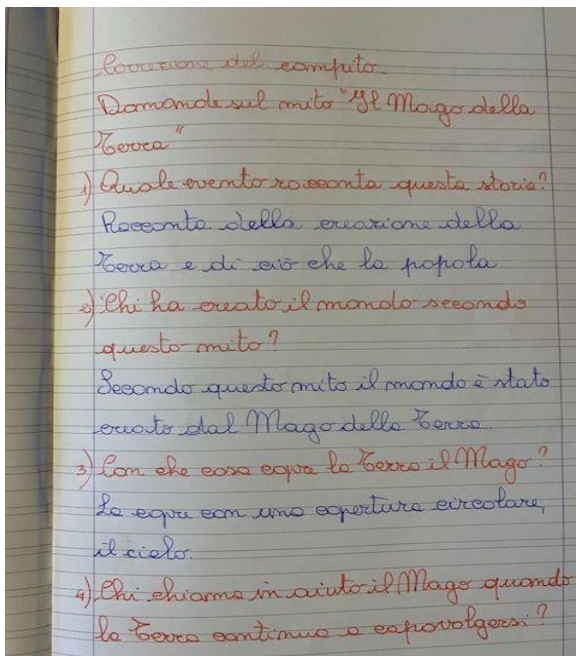 Correzione del compito.
Domande sul mito "Il Mago della
Terra"
1) Quale evento racconta questa storia?
Racconta della creazione della
Terra e di ciò che la popola
2) Chi ha creato il mondo secondo
questo mito?
Secondo questo mito il mondo è stato
creato dal Mago della Terra
3) Con che cosa copre la Terra il Mago?
La copre con una copertura circolare,
il cielo.
4) Chi chiama in aiuto il Mago quando
la Terra continua a capovolgersi?